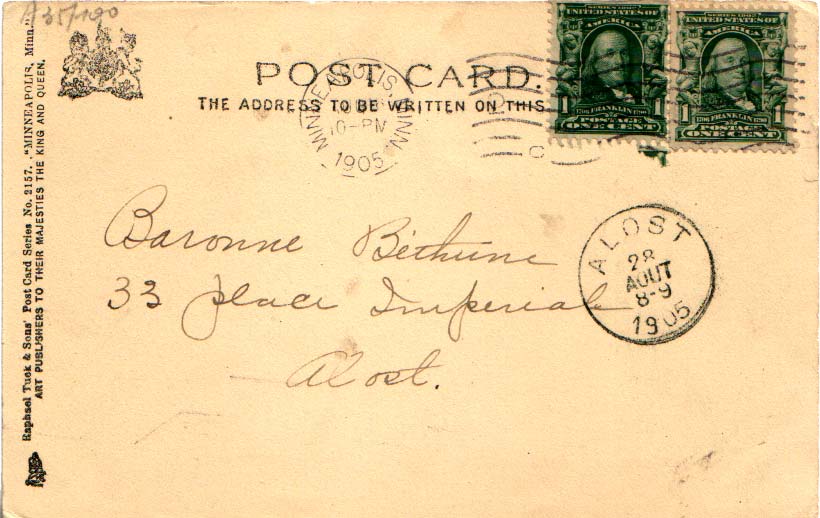 A35/190
POST CARD.
THE ADDRESS TO BE WRITTEN ON THIS
MINNEAPOLIS, MINN.
10-PM
1905
2
C
SERIES 1902
UNITED STATES OF
AMERICA
1 1706 FRANKLIN 1790 1
POSTAGE
ONE CENT
SERIES 1902
UNITED STATES OF
AMERICA
1 1706 FRANKLIN 1790 1
POSTAGE
ONE CENT
ALOST
28
AOUT
8-9
1905
Baronne Béthune
33 place Imperial
Alost.
Raphael Tuck & Sons' Post Card Series No. 2157. "MINNEAPOLIS, Minn."
ART PUBLISHERS TO THEIR MAJESTIES THE KING AND QUEEN.